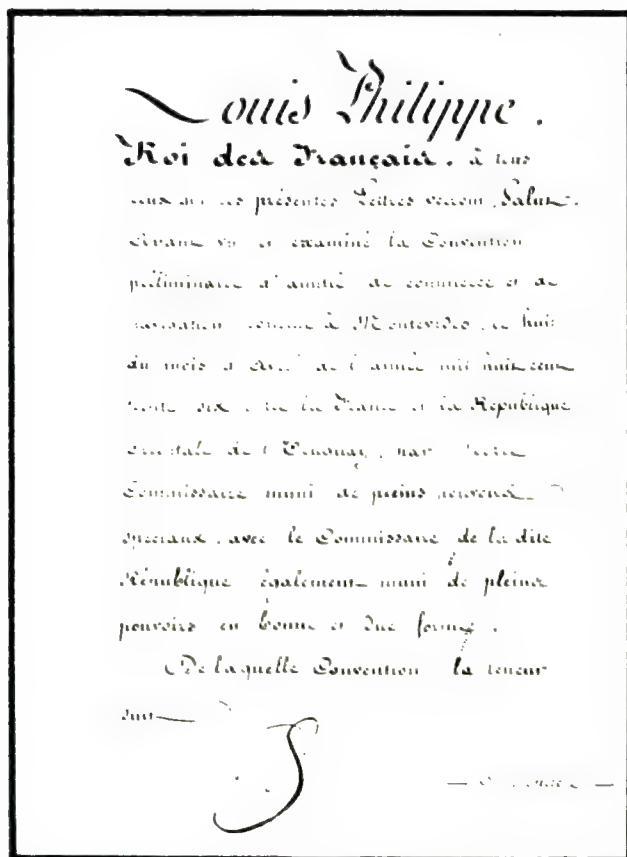 Louis Philippe.
Roi des Français. à tous
ceux qui ces présentes Lettres verront, Salut.
Ayant vu et examiné la Convention
préliminaire d'amitié de commerce et de
navigation conclue à Montevideo, le huit
du mois d'Avril de l'année mil huit cent
trente six entre la France et la République
Orientale de l'Uruguay, par notre
Commissaire muni de pleins pouvoirs
spéciaux, avec le Commissaire de la dite
République également muni de pleins
pouvoirs en bonne et due forme.
De laquelle Convention la teneur
suit